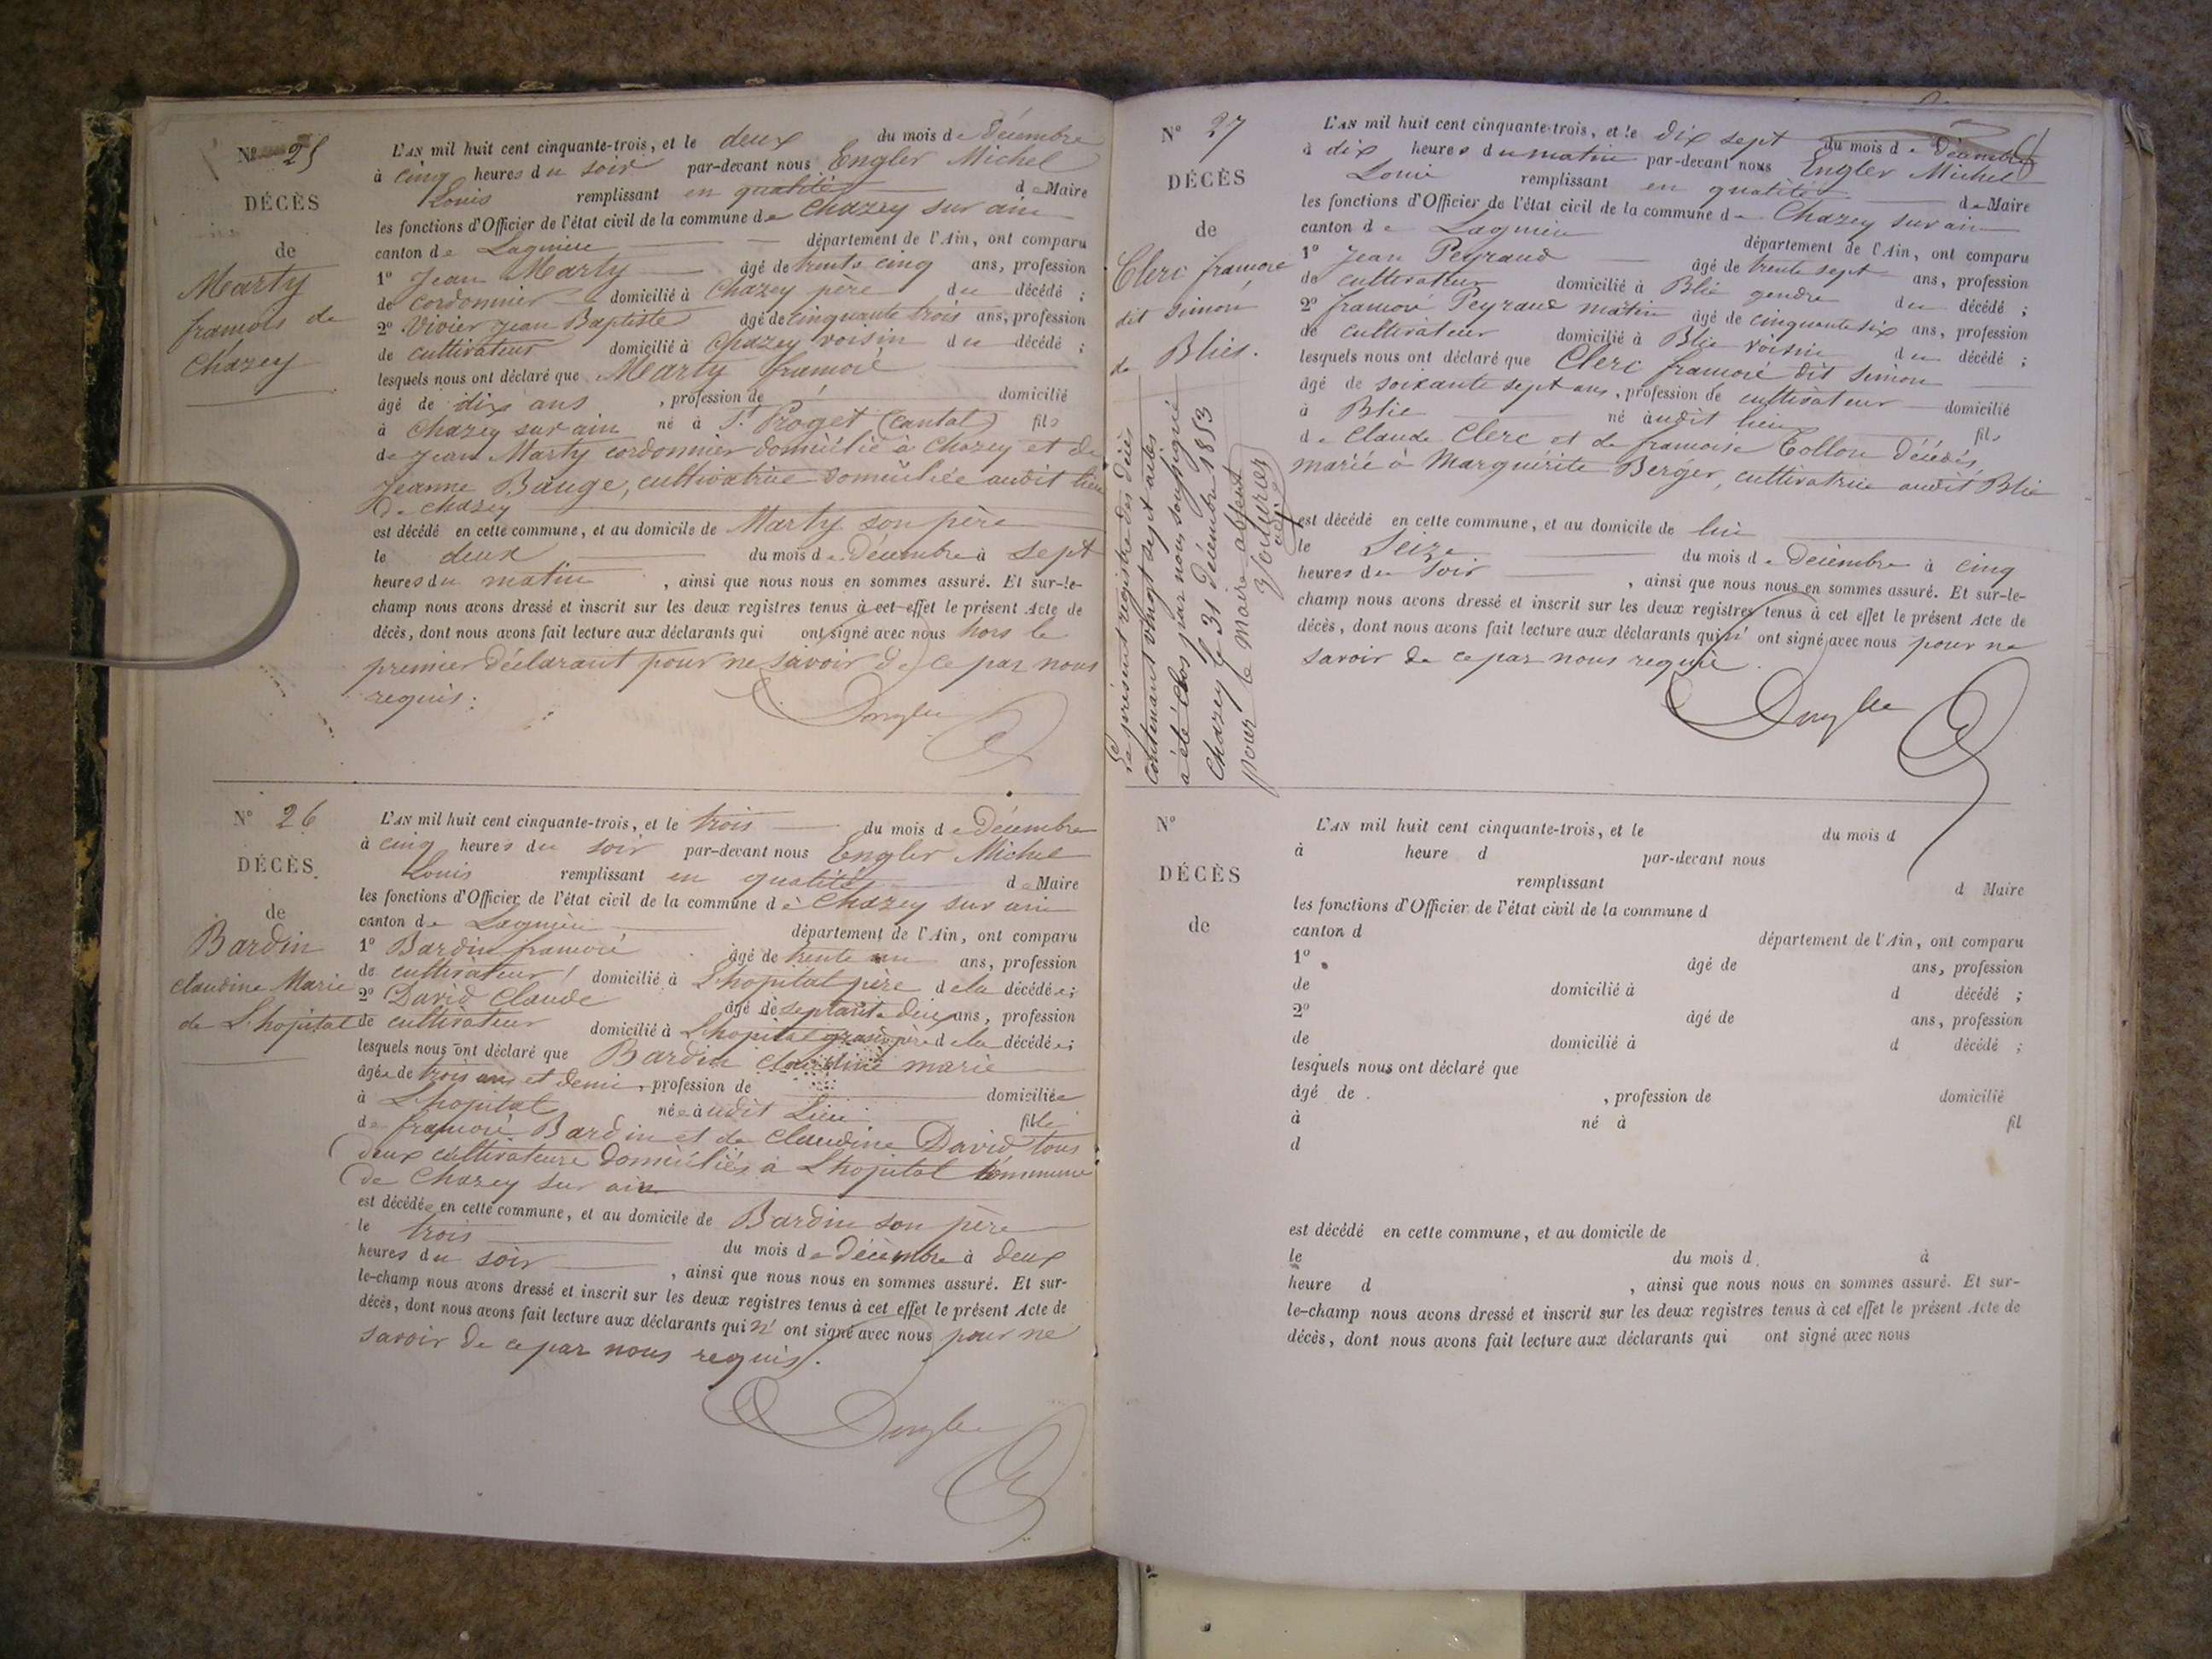 N° 25
DÉCÈS
de
Marty
françois de
Chazey
L'AN mil huit cent cinquante-trois, et le deux du mois de Décembre
à cinq heures du soir par-devant nous Engler Michel
Louis remplissant en qualité de Maire
les fonctions d'Officier de l'état civil de la commune de Chazey sur ain
canton de Lagnieu département de l'Ain, ont comparu
1° Jean Marty âgé de trente cinq ans, profession
de cordonnier domicilié à Chazey père du décédé ;
2° Vivier Jean Baptiste âgé de cinquante trois ans, profession
de cultivateur domicilié à Chazey voisin du décédé ;
lesquels nous ont déclaré que Marty françois
âgé de dix ans , profession de domicilié
à Chazey sur ain né à St. Proget (Cantal) fils
de Jean Marty cordonnier domicilié à Chazey et de
Jeanne Bauge, cultivatrice domiciliée audit lieu
de Chazey
est décédé en cette commune, et au domicile de Marty son père
le deux du mois de Décembre à sept
heures du matin , ainsi que nous nous en sommes assuré. Et sur-le-
champ nous avons dressé et inscrit sur les deux registres tenus à cet effet le présent Acte de
décès, dont nous avons fait lecture aux déclarants qui ont signé avec nous hors le
premier déclarant pour ne savoir de ce par nous
requis.
N° 26
DÉCÈS.
de
Bardin
claudine Marie
de L'hopital
L'AN mil huit cent cinquante-trois, et le trois du mois de Décembre
à cinq heures du soir par-devant nous Engler Michel
Louis remplissant en qualité de Maire
les fonctions d'Officier de l'état civil de la commune de Chazey sur ain
canton de Lagnieu département de l'Ain, ont comparu
1° Bardin françois âgé de trente un ans, profession
de cultivateur domicilié à L'hopital père de la décédée ;
2° David Claude âgé de septante deux ans, profession
de cultivateur domicilié à L'hopital grand père de la décédée ;
lesquels nous ont déclaré que Bardin claudine marie
âgée de trois ans et demi, profession de domiciliée
à L'hopital née audit Lieu fille
de françois Bardin et de Claudine David, tous
deux cultivateurs domiciliés à L'hopital commune
de Chazey sur ain
est décédée en cette commune, et au domicile de Bardin son père
le trois du mois de décembre à deux
heures du soir , ainsi que nous nous en sommes assuré. Et sur-
le-champ nous avons dressé et inscrit sur les deux registres tenus à cet effet le présent Acte de
décès, dont nous avons fait lecture aux déclarants qui n' ont signé avec nous pour ne
savoir de ce par nous requis.
N° 27
DÉCÈS
de
Clerc françois
dit simon,
de Blies.
Le présent registre des décès
contenant vingt sept actes
a été clos par nous soussigné
Chazey le 31 Décembre 1853
pour le Maire absent
L'AN mil huit cent cinquante-trois, et le dix sept du mois de Décembre
à dix heures du matin par-devant nous Engler Michel
Louis remplissant en qualité de Maire
les fonctions d'Officier de l'état civil de la commune de Chazey sur ain
canton de Lagnieu département de l'Ain, ont comparu
1° Jean Peyraud âgé de trente sept ans, profession
de cultivateur domicilié à Blie gendre du décédé ;
2° françois Peyraud matin âgé de cinquante six ans, profession
de cultivateur domicilié à Blie voisin du décédé ;
lesquels nous ont déclaré que Clerc françois dit simon
âgé de soixante sept ans, profession de cultivateur domicilié
à Blie né audit lieu fils
de Claude Clerc et de françoise Collon décédés,
marié à Marguérite Berger, cultivatrice audit Blie
est décédé en cette commune, et au domicile de lui
le Seize du mois de Décembre à cinq
heures du Soir , ainsi que nous nous en sommes assuré. Et sur-le-
champ nous avons dressé et inscrit sur les deux registres tenus à cet effet le présent Acte de
décès, dont nous avons fait lecture aux déclarants qui n' ont signé avec nous pour ne
savoir de ce par nous requis.
N°
DÉCÈS
de
L'AN mil huit cent cinquante-trois, et le du mois d
à heure d par-devant nous
remplissant d Maire
les fonctions d'Officier de l'état civil de la commune d
canton d département de l'Ain, ont comparu
1° âgé de ans, profession
de domicilié à d décédé ;
2° âgé de ans, profession
de domicilié à d décédé ;
lesquels nous ont déclaré que
âgé de , profession de domicilié
à né à fil
d
est décédé en cette commune, et au domicile de
le du mois d à
heure d , ainsi que nous nous en sommes assuré. Et sur-
le-champ nous avons dressé et inscrit sur les deux registres tenus à cet effet le présent Acte de
décès, dont nous avons fait lecture aux déclarants qui ont signé avec nous